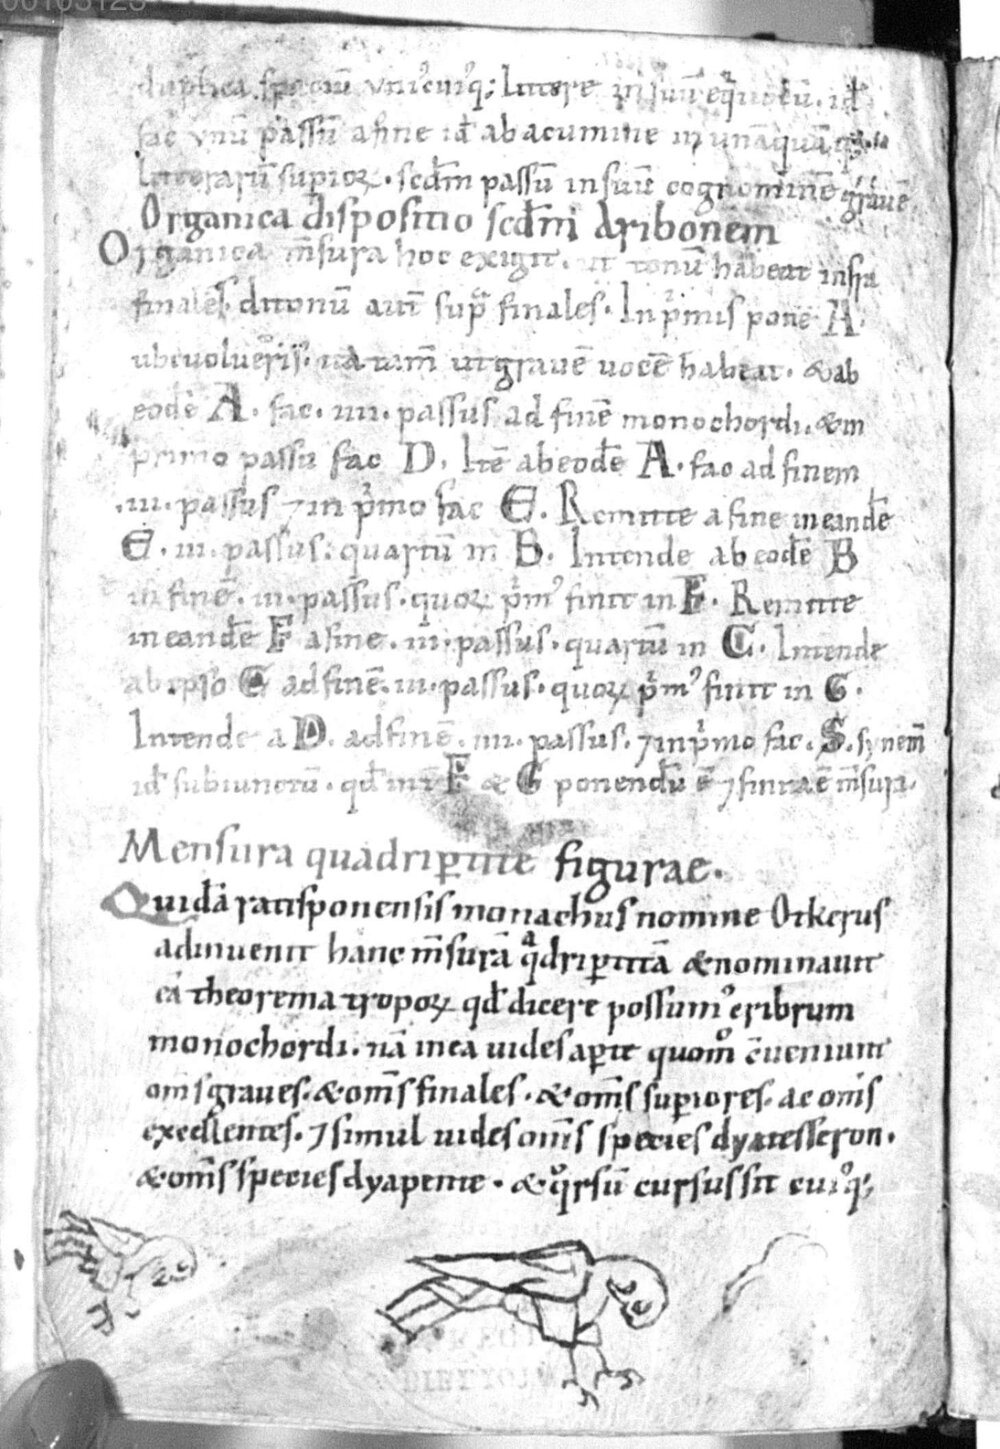 00103125
duplica spaciū vnicuiq; littere in suū eq̄uocū. id
fac vnū passū a fine id ab acumine in unāquāq
litterarū suprioꝝ. scdm passū in suū cognominē gravē
Organica dispositio scdm Aribonem
Organica m̄sura hoc exigit. ut tonū habeat infra
finales. ditonū aut sup finales. In pͥmis pone A.
ubcuoluer̄is. ita tam̄ ut gravē uocē habeat. & ab
eodē A. fac. iiii. passus ad finē monochordi. & in
primo passu fac D. Itē ab eodē A. fac ad finem
.iii. passus ⁊ in pͥmo fac E. Remitte a fine in eandē
E. iii. passus. quartū in B. Intende ab eodē B
in finē. iii. passus. quoꝝ pͥm᾿ finit in F. Remitte
in eandē F a fine. iii. passus. quartū in C. Intende
ab ipso C ad finē. iii. passus. quoꝝ pͥm᾿ finit in G.
Intende a D. ad finē. iiii. passus. ⁊ in pͥmo fac. S. synem̄
id subiunctū. qd int F & G ponendū ē ⁊ finita ē m̄sura.
Mensura quadriꝑtite figurae.
Quidā ratisponensis monachus nomine Otkerus
adinuenit hanc m̄surā qͣdriꝑtitā & nominauit
eā theorema tropoꝝ qd dicere possum᾿ cribrum
monochordi. nā in ea uides aꝑte quom̊ c̄ueniunt
om̄s graues. & om̄s finales. & om̄s suꝑiores. ac om̄s
excellentes. ⁊ simul uides om̄s species dyatesseron.
& om̄s species dyapente. & qͦrsū cursus sit cuiq;